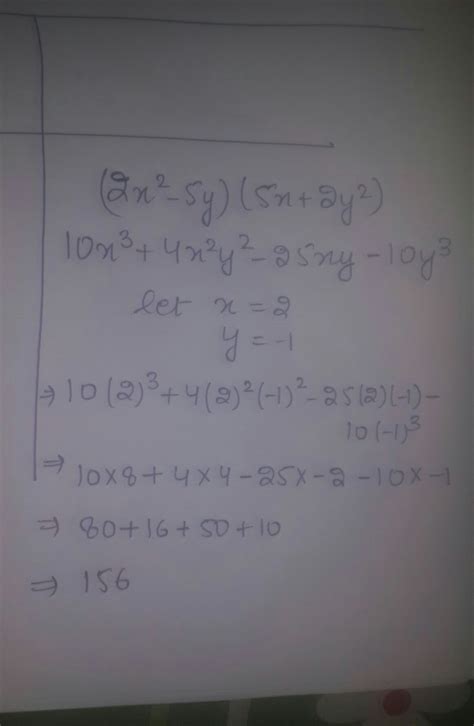 (2x² - 5y) (5x + 2y²)
10x³ + 4x²y² - 25xy - 10y³
let x = 2
y = -1
⇒ 10(2)³ + 4(2)²(-1)² - 25(2)(-1) -
10(-1)³
⇒ 10×8 + 4×4 - 25×-2 - 10×-1
⇒ 80 + 16 + 50 + 10
⇒ 156